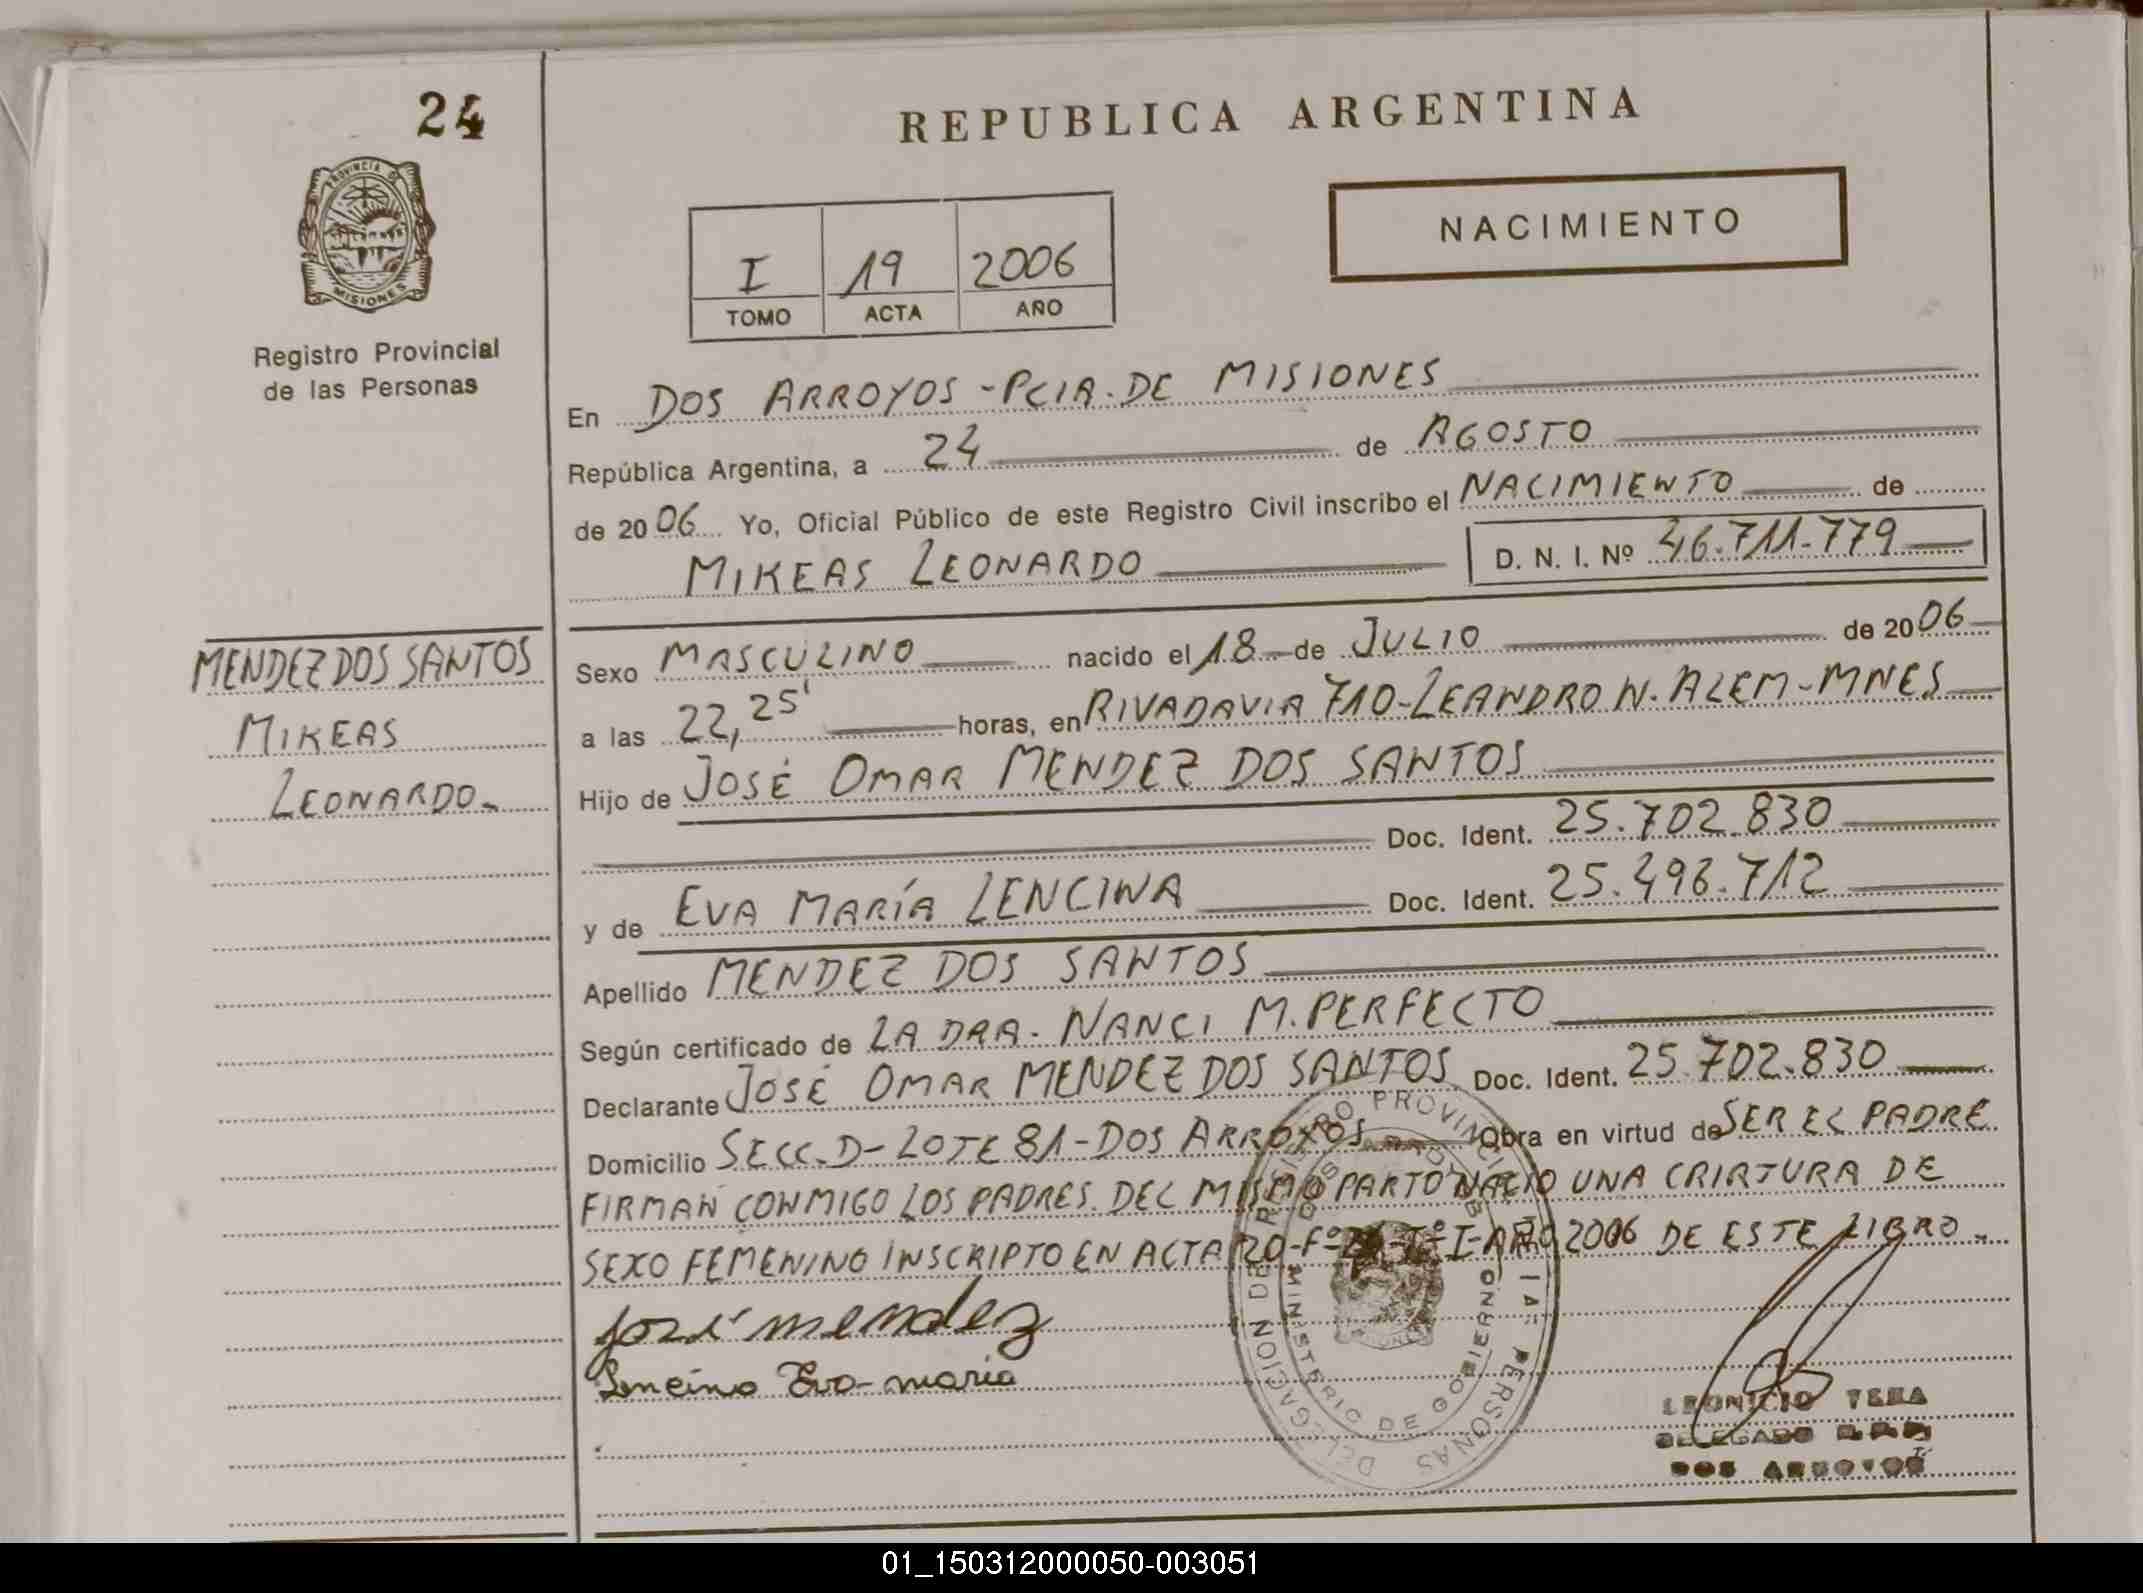 24
PROVINCIA DE
MISIONES
Registro Provincial
de las Personas
REPUBLICA ARGENTINA
NACIMIENTO
I 19 2006
TOMO ACTA AÑO
En DOS ARROYOS - PCIA. DE MISIONES
República Argentina, a 24 de AGOSTO
de 2006 Yo, Oficial Público de este Registro Civil inscribo el NACIMIENTO de
MIKEAS LEONARDO D. N. I. Nº 46.711.779
MENDEZ DOS SANTOS
MIKEAS
LEONARDO-
Sexo MASCULINO nacido el 18 de JULIO de 2006
a las 22,25' horas, en RIVADAVIA 710-LEANDRO N. ALEM-MNES
Hijo de JOSÉ OMAR MENDEZ DOS SANTOS
Doc. Ident. 25.702.830
y de EVA MARÍA LENCINA Doc. Ident. 25.496.712
Apellido MENDEZ DOS SANTOS
Según certificado de LA DRA. NANCI M. PERFECTO
Declarante JOSÉ OMAR MENDEZ DOS SANTOS Doc. Ident. 25.702.830
Domicilio SECC. D- LOTE 81- DOS ARROYOS Obra en virtud de SER EL PADRE
FIRMAN CONMIGO LOS PADRES. DEL MISMO PARTO NACIO UNA CRIATURA DE
SEXO FEMENINO INSCRIPTO EN ACTA 20-Fº Tº I-AÑO 2006 DE ESTE LIBRO-
José mendez
Lencina Eva maria
DELEGACION DE REGISTRO PROVINCIAL PERSONAS
DOS ARROYOS
MINISTERIO DE GOBIERNO
LEONICIO
DELEGADO
DOS ARROYOS
01_150312000050-003051